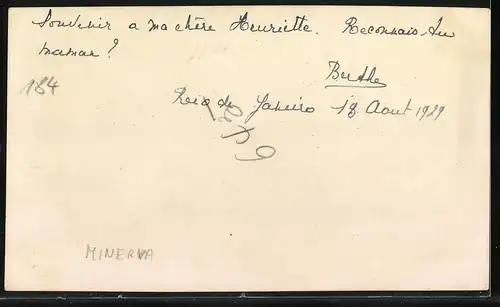 Souvenir a ma chère Henriette. Reconnais-tu
maman?
Berthe
184
Rio de Janeiro 18 Aout 1929
MINERVA